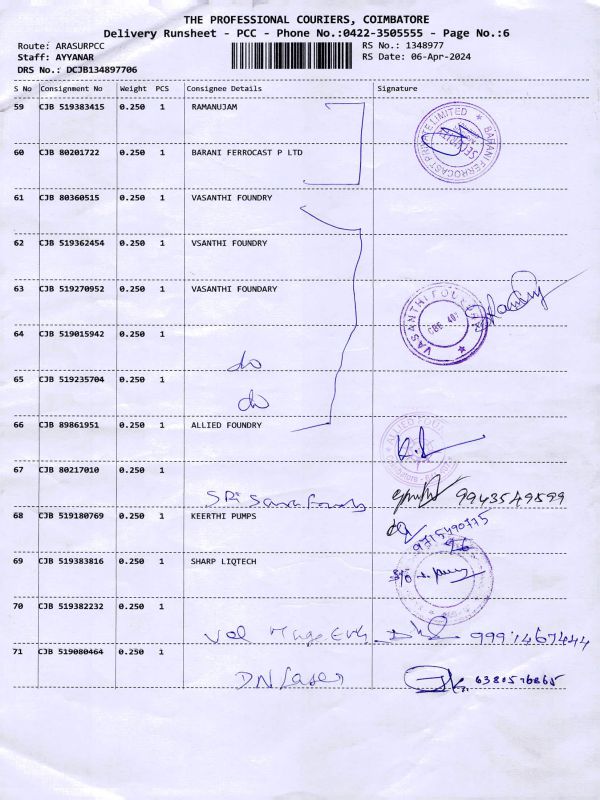 THE PROFESSIONAL COURIERS, COIMBATORE
Delivery Runsheet - PCC - Phone No.:0422-3505555 - Page No.:6
Route: ARASURPCC RS No.: 1348977
Staff: AYYANAR RS Date: 06-Apr-2024
DRS No.: DCJB134897706
S No Consignment No Weight PCS Consignee Details Signature
59 CJB 519383415 0.250 1 RAMANUJAM
BARANI FERROCAST PRIVATE LIMITED
60 CJB 80201722 0.250 1 BARANI FERROCAST P LTD
61 CJB 80360515 0.250 1 VASANTHI FOUNDRY
62 CJB 519362454 0.250 1 VSANTHI FOUNDRY
63 CJB 519270952 0.250 1 VASANTHI FOUNDARY
VASANTHI FOUNDRY
64 CJB 519015942 0.250 1
do
65 CJB 519235704 0.250 1
do
66 CJB 89861951 0.250 1 ALLIED FOUNDRY
67 CJB 80217010 0.250 1
SRi Foundry 9943549899
68 CJB 519180769 0.250 1 KEERTHI PUMPS
9715490775
69 CJB 519383816 0.250 1 SHARP LIQTECH
70 CJB 519382232 0.250 1
Vel
71 CJB 519080464 0.250 1
DN Laser